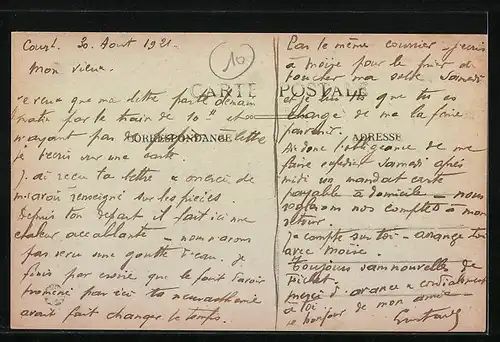 10
CARTE POSTALE
CORRESPONDANCE
ADRESSE
Const. 30. Aout 1921.
Mon vieux.
Je veux que ma lettre parte demain
matin par le train de 10h et
n'ayant pas de papier à lettre
je t'écris sur une carte.
J'ai reçu ta lettre merci de
m'avoir renseigné sur les pièces.
Depuis ton départ il fait ici une
chaleur accablante – nous n'avons
pas reçu une goutte d'eau. Je
finis par croire que le fait d'avoir
promené par ici ta neurasthénie
avait fait changer le temps.
Par le même courrier j'écris
à Moise pour le prier de
toucher ma solde samedi
et je lui dis que tu es
chargé de me la faire
parvenir.
Aie donc l'obligeance de me
faire expédier samedi après
midi un mandat carte
payable à domicile – nous
règlerons nos comptes à mon
retour.
Je compte sur toi – arrange toi
avec Moise.
Toujours sans nouvelles de
Merci d'avance & cordialement
à toi.
le bonjour de mon
Gustave